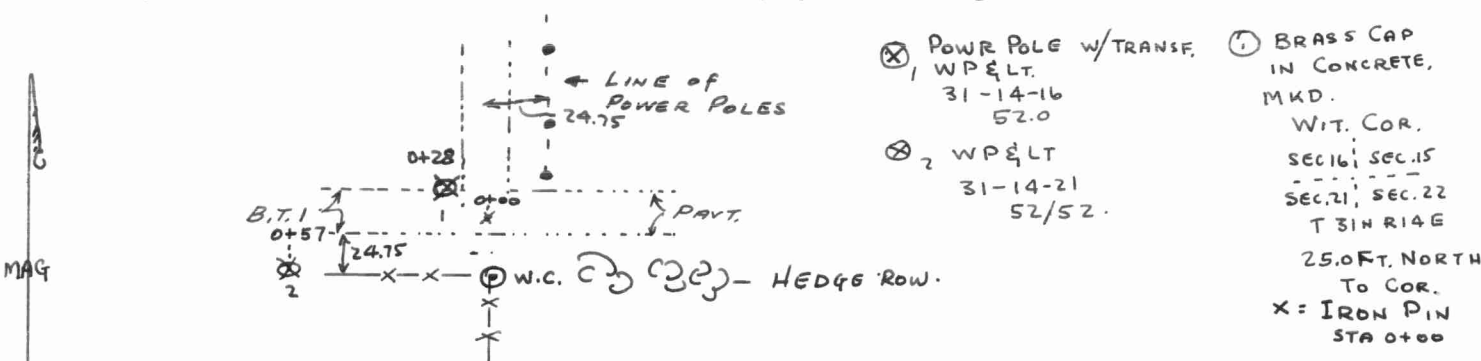 LINE OF
POWER POLES
24.75
0+28
0+00
B.T.1
PAVT.
0+57
24.75
MAG
1
2
W.C.
HEDGE ROW.
1 POWR POLE W/TRANSF.
WP&LT.
31-14-16
52.0
2 WP&LT
31-14-21
52/52.
1 BRASS CAP
IN CONCRETE,
MKD.
WIT. COR.
SEC 16 SEC. 15
SEC. 21 SEC. 22
T 31N R14E
25.0 FT. NORTH
TO COR.
X = IRON PIN
STA 0+00